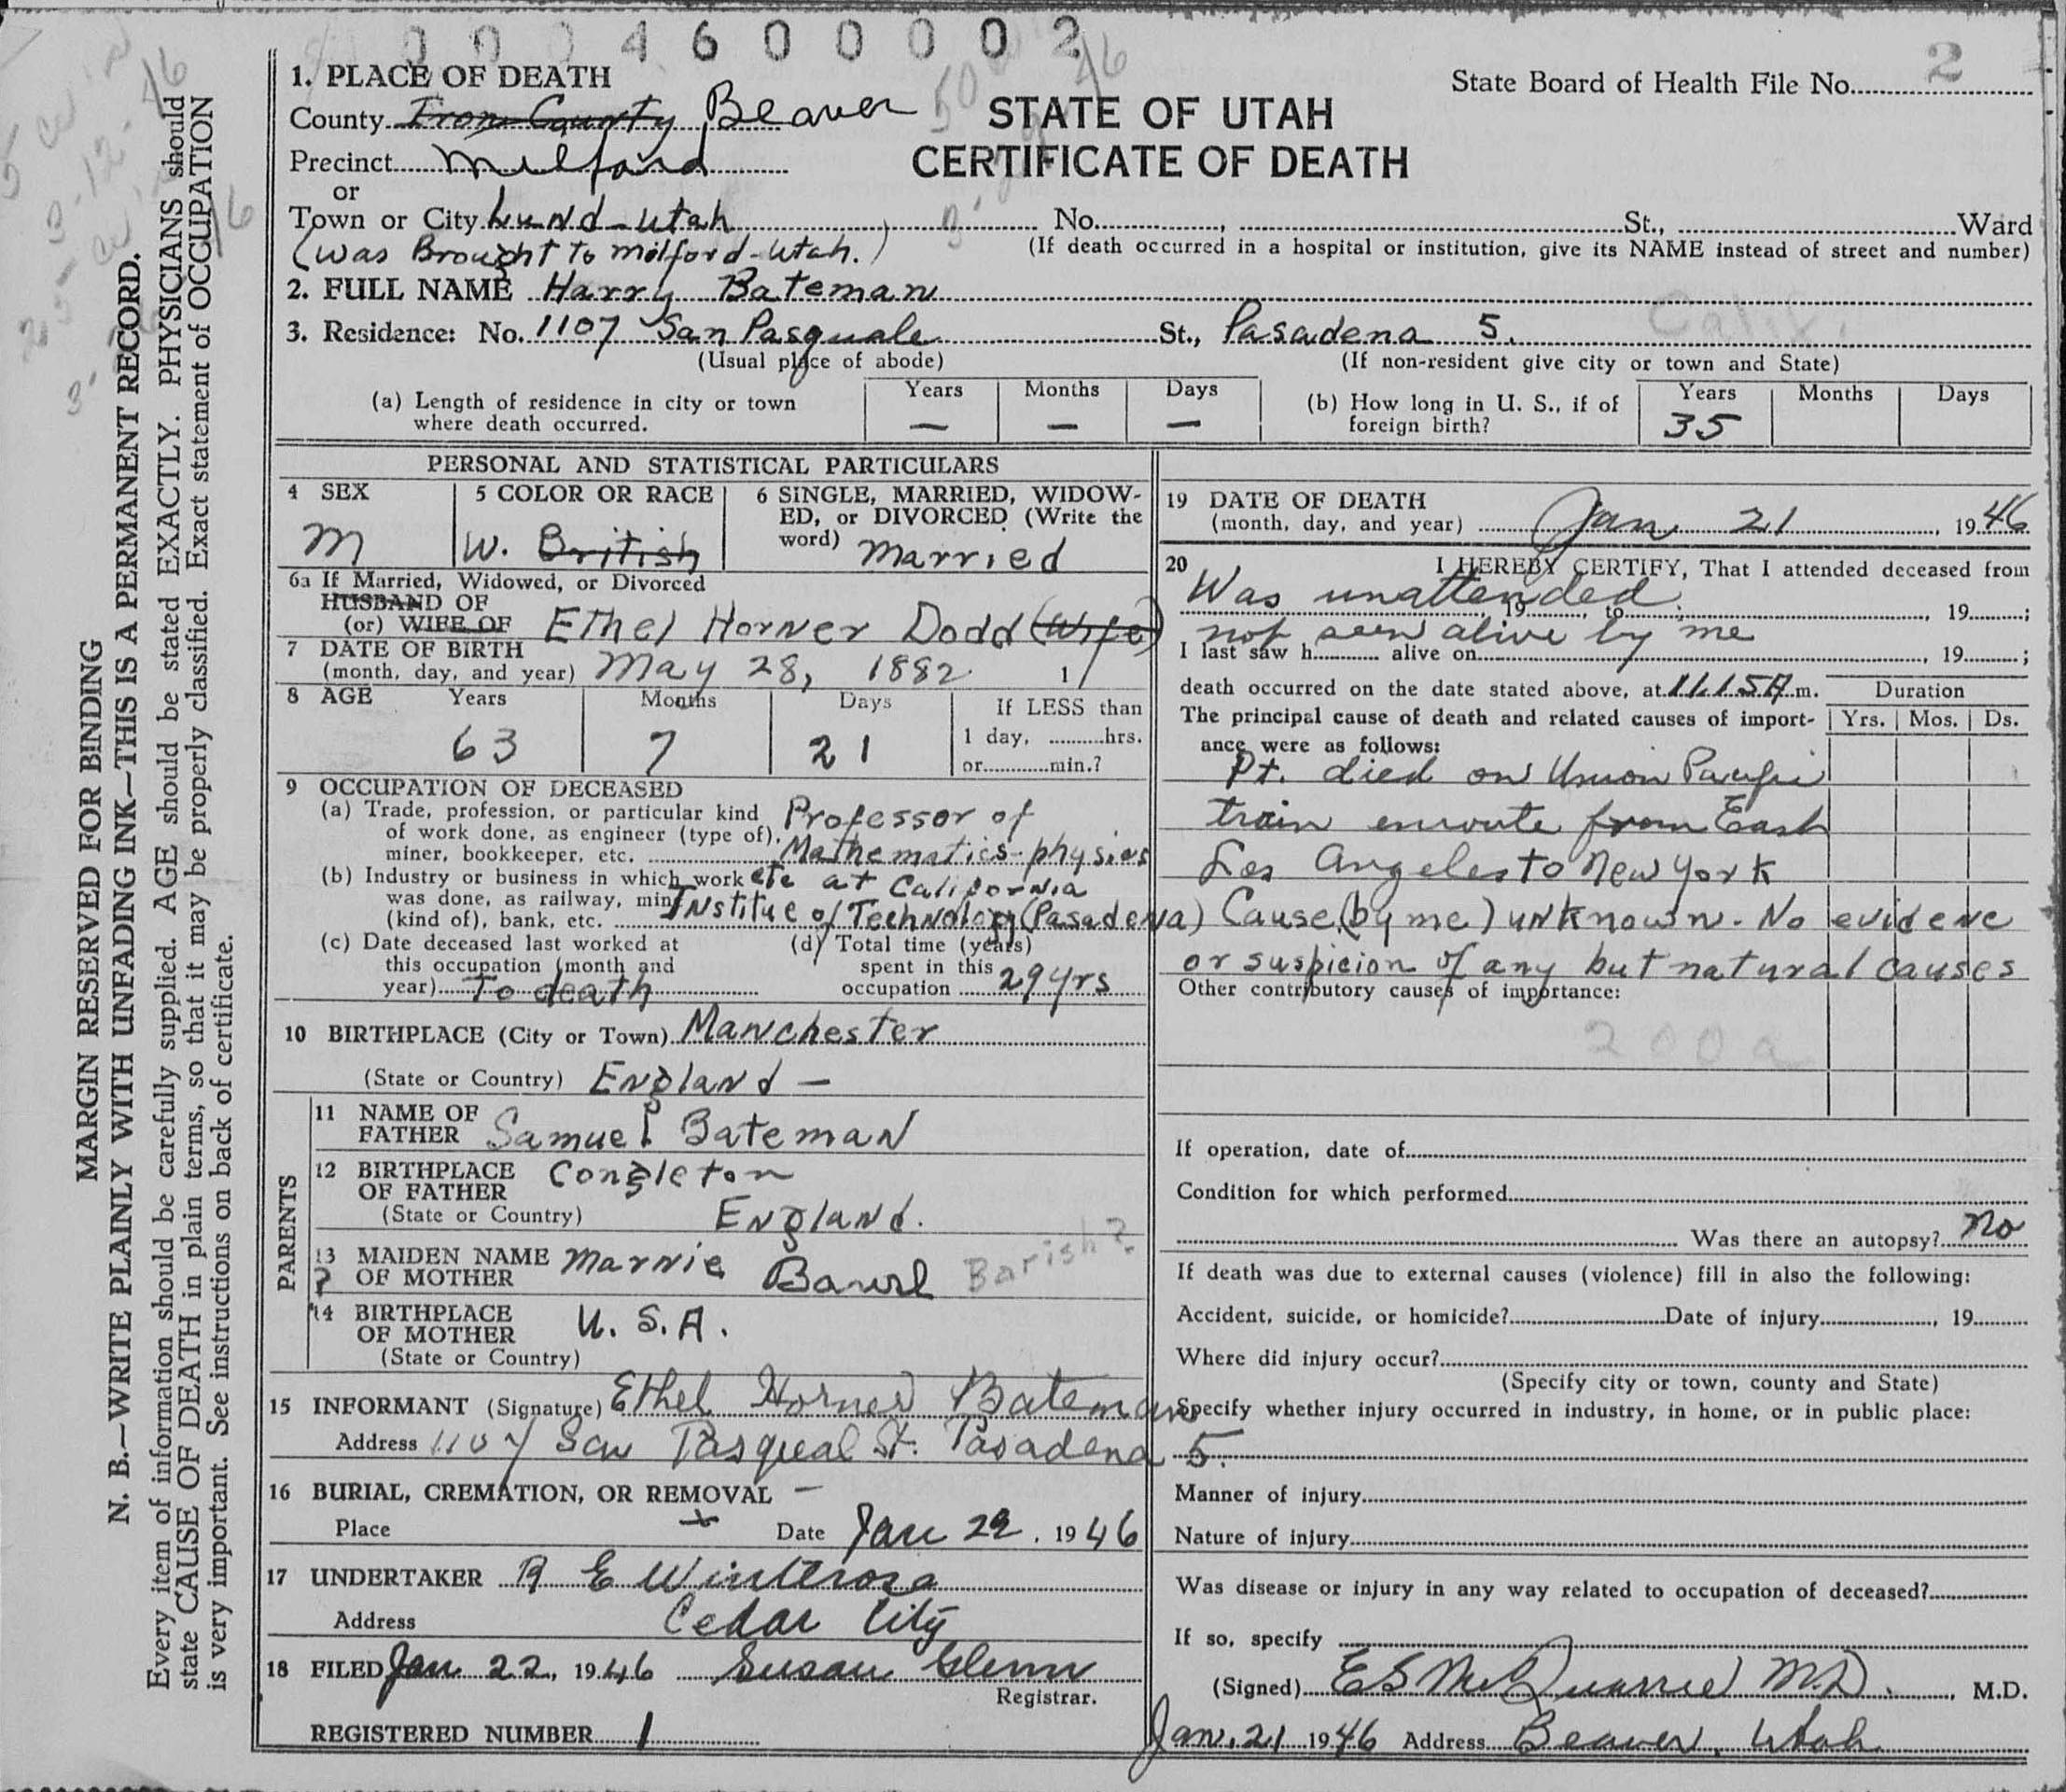 0 0 0 4 6 0 0 0 0 2
1. PLACE OF DEATH
State Board of Health File No. 2
County Iron County Beaver
STATE OF UTAH
Precinct Milford
CERTIFICATE OF DEATH
or
Town or City Lund - Utah No. , St., Ward
(was Brought to Milford - Utah.) (If death occurred in a hospital or institution, give its NAME instead of street and number)
2. FULL NAME Harry Bateman
3. Residence: No. 1107 San Pasquale St., Pasadena 5. Calif.
(Usual place of abode) (If non-resident give city or town and State)
(a) Length of residence in city or town where death occurred. Years — Months — Days —
(b) How long in U. S., if of foreign birth? Years 35 Months Days
PERSONAL AND STATISTICAL PARTICULARS
4 SEX
M
5 COLOR OR RACE
W. British
6 SINGLE, MARRIED, WIDOW-
ED, or DIVORCED (Write the
word) Married
6a If Married, Widowed, or Divorced
HUSBAND OF
(or) WIFE OF Ethel Horner Dodd (Wife)
7 DATE OF BIRTH
(month, day, and year) May 28, 1882
8 AGE Years Months Days If LESS than
63 7 21 1 day, hrs.
or min.?
9 OCCUPATION OF DECEASED
(a) Trade, profession, or particular kind Professor of
of work done, as engineer (type of),
miner, bookkeeper, etc. Mathematics - physics
(b) Industry or business in which work etc at California
was done, as railway, mine
(kind of), bank, etc. Institue of Technology (Pasadena)
(c) Date deceased last worked at
this occupation (month and
year) To death
(d) Total time (years)
spent in this
occupation 29 yrs
10 BIRTHPLACE (City or Town) Manchester
(State or Country) England —
PARENTS
11 NAME OF
FATHER Samuel Bateman
12 BIRTHPLACE Congleton
OF FATHER
(State or Country) England.
13 MAIDEN NAME Marnie
? OF MOTHER Barish?
14 BIRTHPLACE U. S. A.
OF MOTHER
(State or Country)
15 INFORMANT (Signature) Ethel Horner Bateman
Address 1107 San Pasqual St. Pasadena 5.
16 BURIAL, CREMATION, OR REMOVAL —
Place Date Jan 22, 1946
17 UNDERTAKER R E Winterose
Address Cedar City
18 FILED Jan 22, 1946 Susan Glenn
Registrar.
REGISTERED NUMBER 1
19 DATE OF DEATH
(month, day, and year) Jan 21, 1946
20 I HEREBY CERTIFY, That I attended deceased from
Was unattended , 19 , to , 19 ;
not seen alive by me
I last saw h alive on , 19 ;
death occurred on the date stated above, at 11.15 A m. Duration
The principal cause of death and related causes of import- Yrs. Mos. Ds.
ance were as follows:
Pt. died on Union Pacific
train enroute from East
Los Angeles to New York
Cause (by me) unknown. No evidenc
or suspicion of any but natural causes
Other contributory causes of importance:
200a
If operation, date of
Condition for which performed
Was there an autopsy? No
If death was due to external causes (violence) fill in also the following:
Accident, suicide, or homicide? Date of injury , 19
Where did injury occur?
(Specify city or town, county and State)
Specify whether injury occurred in industry, in home, or in public place:
Manner of injury
Nature of injury
Was disease or injury in any way related to occupation of deceased?
If so, specify
(Signed) E S McQuarrie M.D. , M.D.
Jan. 21 1946 Address Beaver, Utah
MARGIN RESERVED FOR BINDING
N. B.—WRITE PLAINLY WITH UNFADING INK—THIS IS A PERMANENT RECORD.
Every item of information should be carefully supplied. AGE should be stated EXACTLY. PHYSICIANS should
state CAUSE OF DEATH in plain terms, so that it may be properly classified. Exact statement of OCCUPATION
is very important. See instructions on back of certificate.